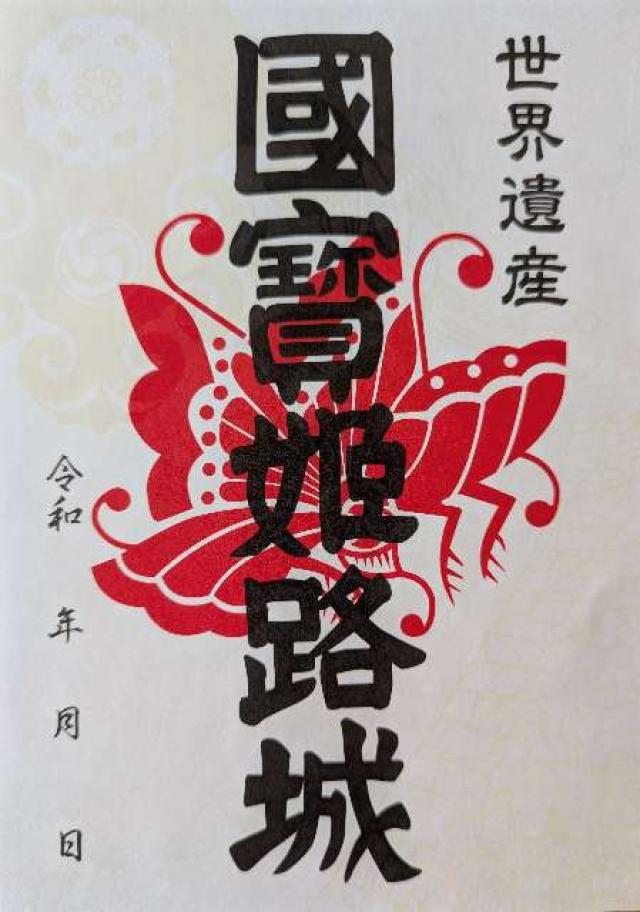 世界遺産
國寶姫路城
令和　年　月　日